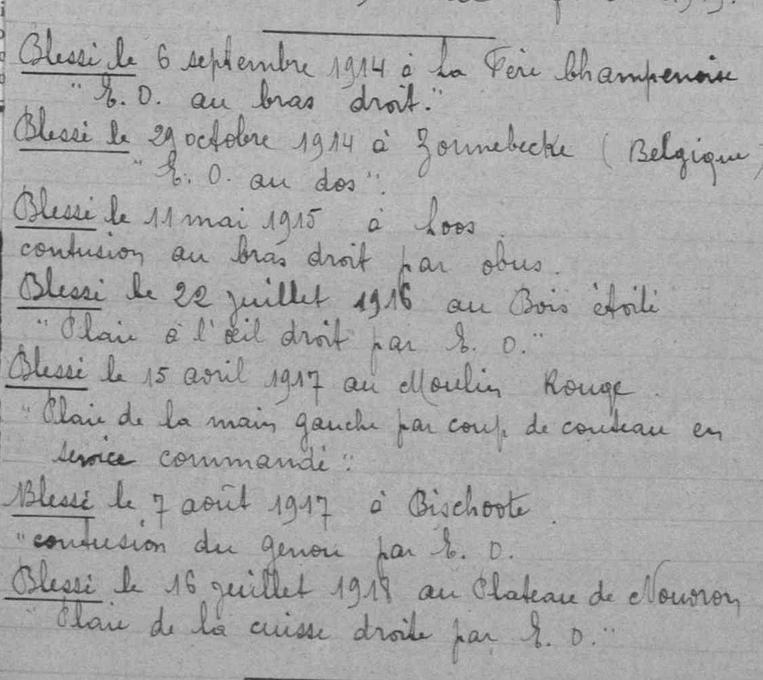 Blessé le 6 septembre 1914 à La Fère Champenoise
"E. O. au bras droit."
Blessé le 29 octobre 1914 à Zonnebecke (Belgique)
"E. O. au dos".
Blessé le 11 mai 1915 à Loos.
contusion au bras droit par obus.
Blessé le 22 juillet 1916 au Bois étoilé
"Plaie à l'œil droit par E. O."
Blessé le 15 avril 1917 au Moulin Rouge.
"Plaie de la main gauche par coup de couteau en
service commandé".
Blessé le 7 août 1917 à Bischoote.
"contusion du genou par E. O.
Blessé le 16 juillet 1918 au Plateau de Nouvron
"Plaie de la cuisse droite par E. O."